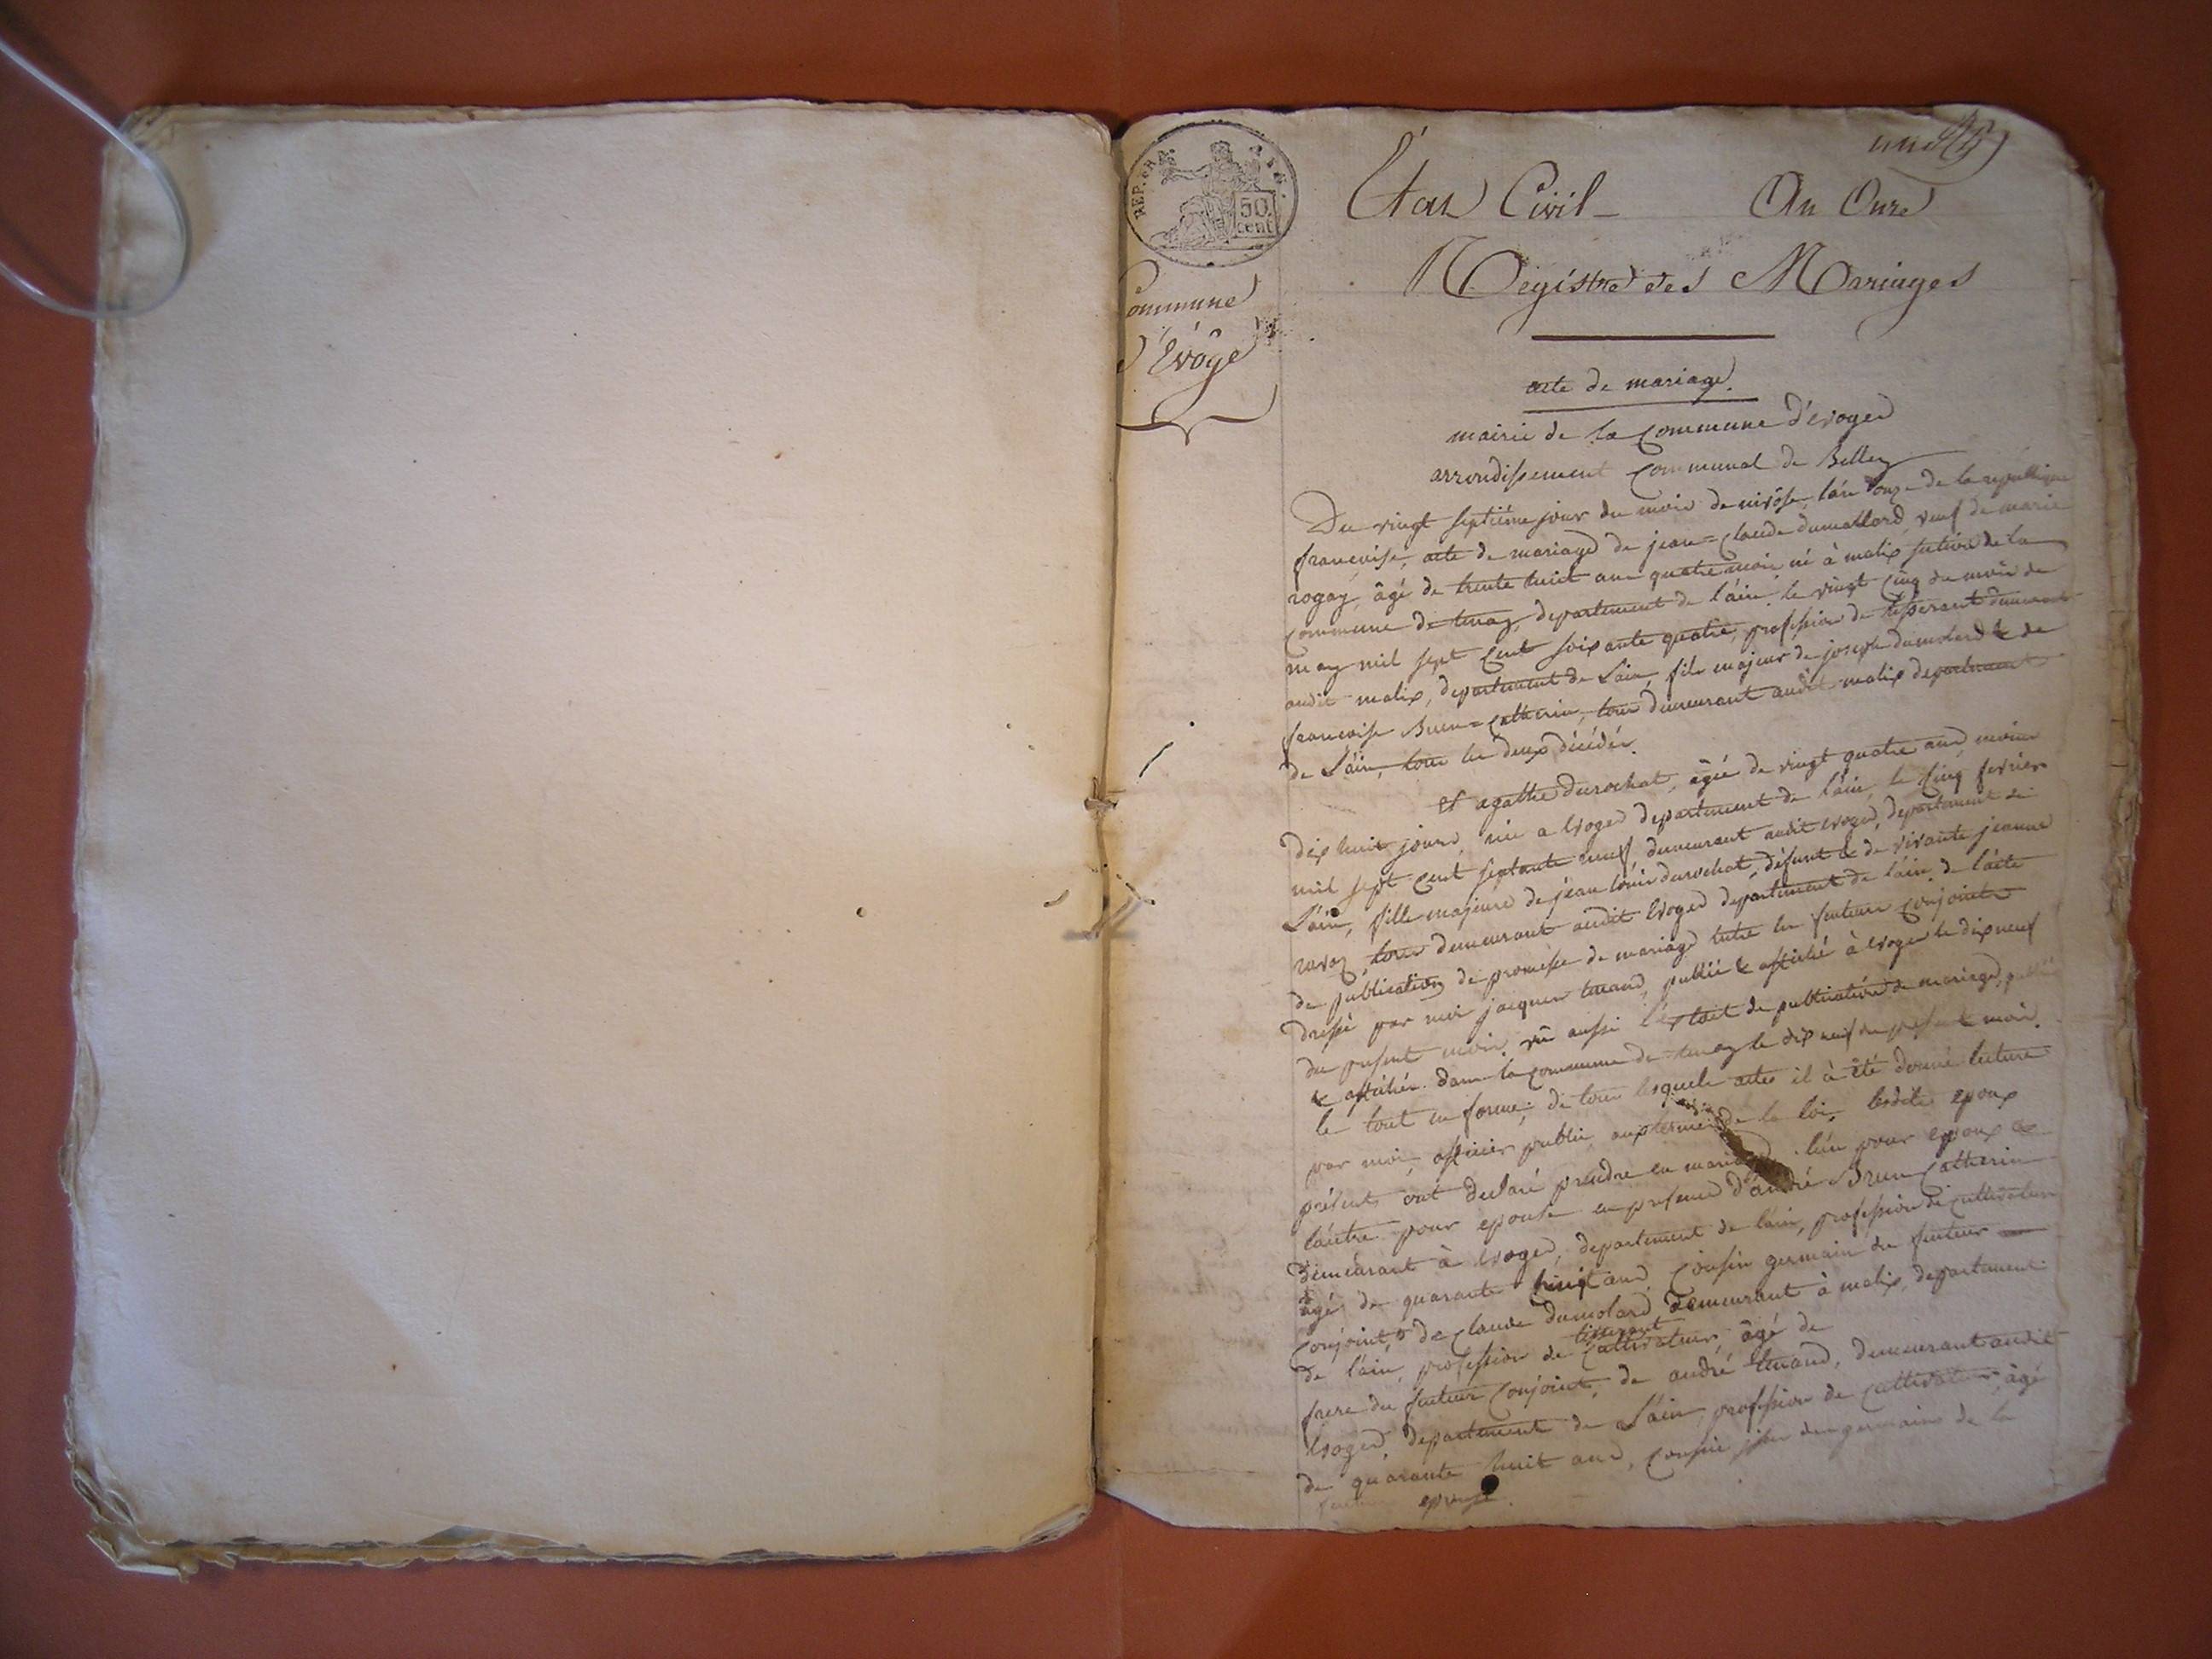 REP. FRA.
50
cent
Commune
d'Evôge
État Civil - An Onze
Régistre des Mariages
acte de mariage.
mairie de la Commune d'Evoges
arrondissement Communal de Belley
Du vingt septiéme jour du mois de nivôse l'an onze de la république
françoise, acte de mariage de jean=claude dumollard veuf de marie
rogay, âgé de trente huit ans quatre mois né à malix section de la
commune de tenay, departement de l'ain, le vingt cinq du mois de
may mil sept cent soixante quatre, profession de tisserant demeurant
audit malix, departement de l'ain, fils majeur de joseph dumolard & de
françoise Brun=Catherin, tous demeurant audit malix departement
de l'ain, tous les deux décédés.
et agathe durochat, âgée de vingt quatre ans, moins
dix huit jours, née a Evoges departement de l'ain, le cinq fevrier
mil sept cent septante neuf, demeurant audit evoges, departement de
l'ain, fille majeure de jean louis durochat, défunt & de vivante jeanne
ravoz, tous demeurant audit Evoges departement de l'ain, de l'acte
de publication de promesse de mariage entre les futurs conjoints
dressé par moi jacques tenand, publié & affiché à Evoges le dix neuf
du present mois, vû aussi l'extrait de publication de mariage, publié
& affichée dans la commune de tenay le dix neuf du present mois,
le tout en forme; de tous lesquels actes il à été donné lecture
par moi, officier public, aux termes de la loi, lesdits epoux
présents ont declaré prendre en mariage l'un pour epoux &
l'autre pour epouse en presence d'andré Brun Catherin
demeurant à Evoges, departement de l'ain, profession de cultivateur
âgé de quarante ans, Cousin germain du futeur
Conjoint, & de Claude dumolard demeurant à malix, departement
de l'ain, profession de tisserant cultivateur, âgé de
frere du futeur Conjoint, de andré tenand, demeurant audit
Evoges, departement de l'ain, profession de cultivateur, âgé
de quarante huit ans, cousin germains de la
epouse.